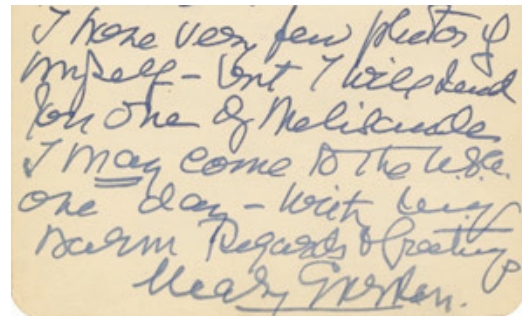 I have very few photos of
myself - but I will send
you one of Melisande
I may come to the U.S.A.
one day - with very
warm Regards & greetings
Mary Garden.